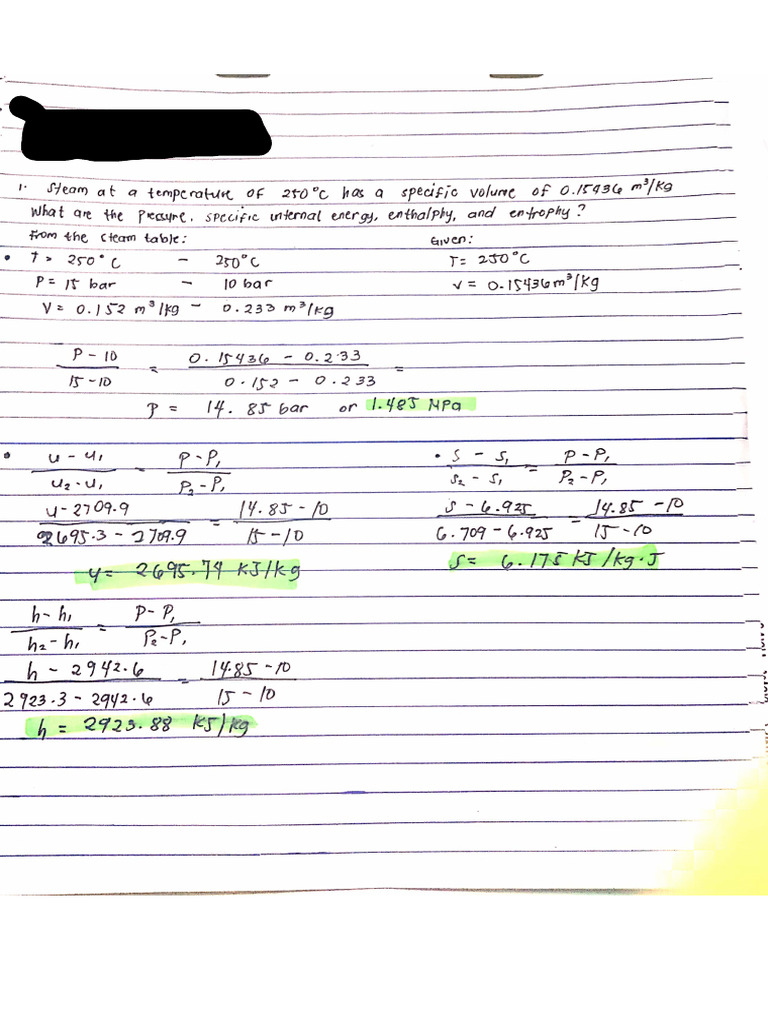 1. Steam at a temperature of 250°C has a specific volume of 0.15436 m³/kg
What are the Pressure, specific internal energy, enthalphy, and entrophy?
From the steam table:
Given:
• T = 250°C - 250°C
T = 250°C
P = 15 bar - 10 bar
v = 0.15436 m³/kg
V = 0.152 m³/kg - 0.233 m³/kg
P - 10 / 15 - 10 = 0.15436 - 0.233 / 0.152 - 0.233 =
P = 14.85 bar or 1.485 MPa
• u - u₁ / u₂ - u₁ = P - P₁ / P₂ - P₁
• s - s₁ / s₂ - s₁ = P - P₁ / P₂ - P₁
u - 2709.9 / 2695.3 - 2709.9 = 14.85 - 10 / 15 - 10
s - 6.925 / 6.709 - 6.925 = 14.85 - 10 / 15 - 10
u = 2695.74 KJ/kg
s = 6.175 KJ/kg·J
h - h₁ / h₂ - h₁ = P - P₁ / P₂ - P₁
h - 2942.6 / 2923.3 - 2942.6 = 14.85 - 10 / 15 - 10
h = 2923.88 KJ/kg